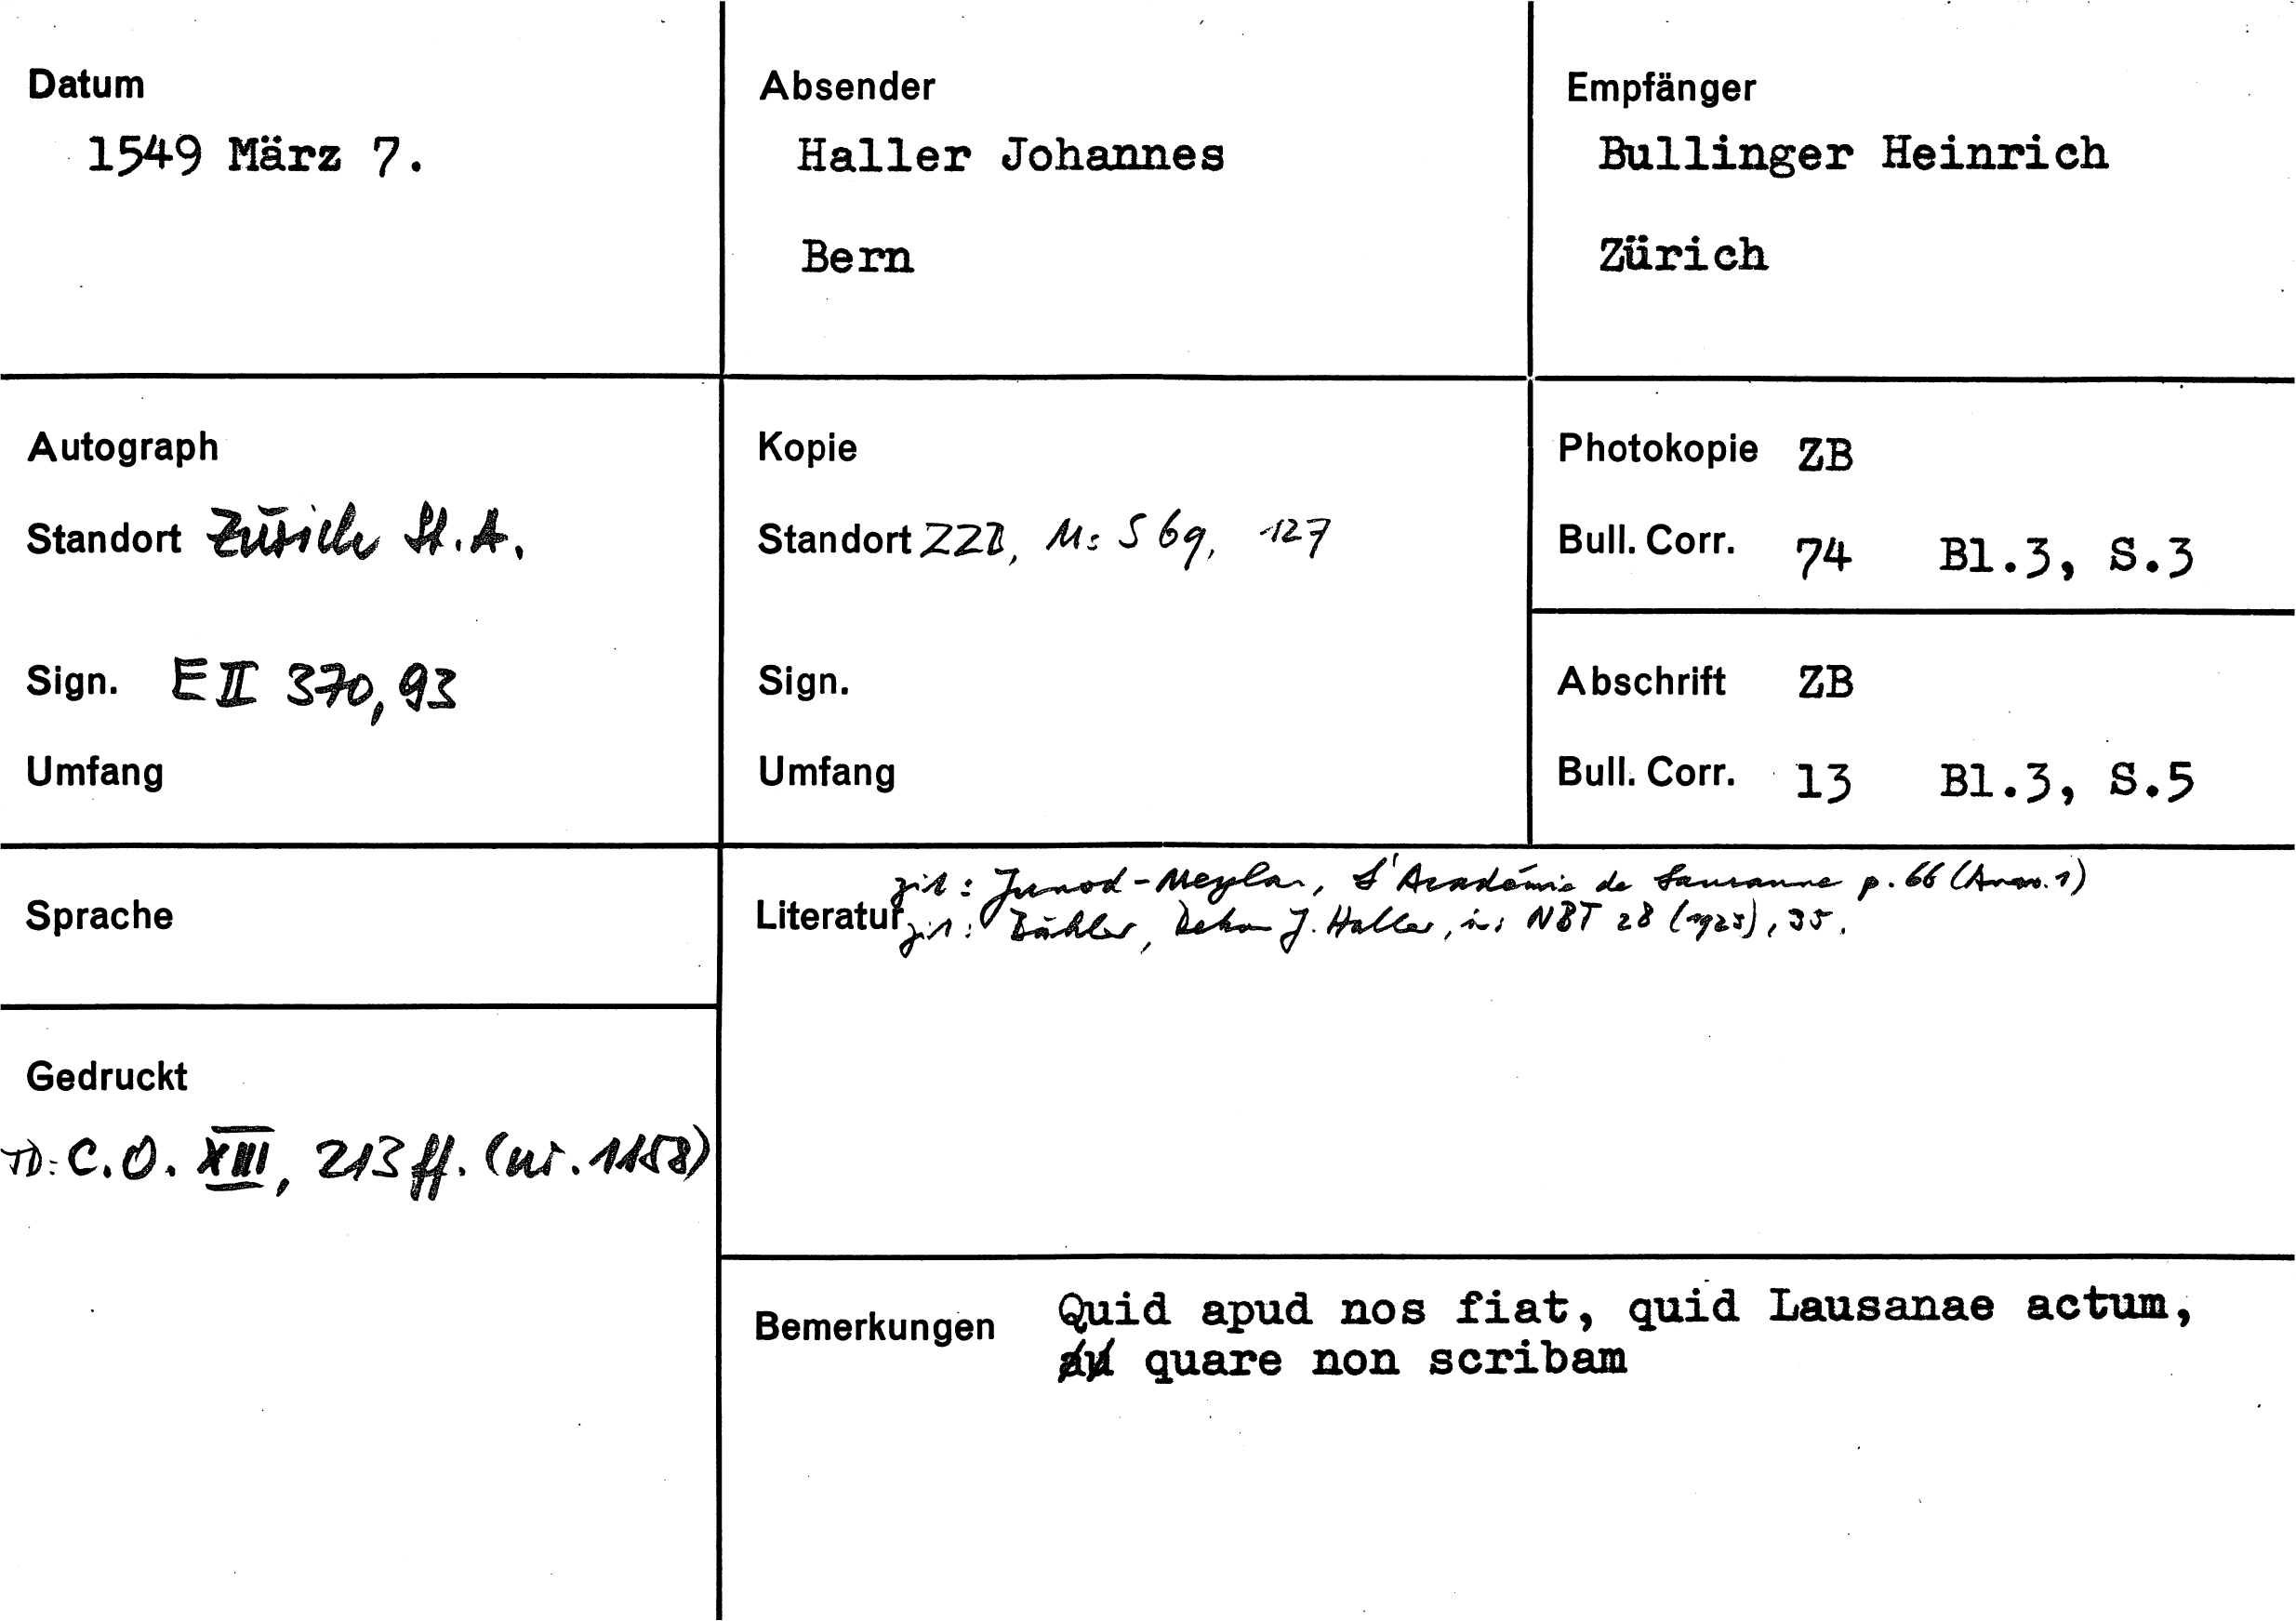 Datum
1549 März 7.
Absender
Haller Johannes
Bern
Empfänger
Bullinger Heinrich
Zürich
Autograph
Standort Zürich St. A.
Sign. E II 370, 93
Umfang
Kopie
Standort ZZB, Ms S 69, 127
Sign.
Umfang
Photokopie ZB
Bull. Corr. 74 Bl.3, S.3
Abschrift ZB
Bull. Corr. 13 Bl.3, S.5
Sprache
Literatur
zit: Junod-Meylan, L'Académie de Lausanne p. 66 (Anm. 1)
zit: Bähler, Dekan J. Haller, in: NBT 28 (1923), 35.
Gedruckt
TD: C.O. XIII, 213 ff. (nr. 1158)
Bemerkungen Quid apud nos fiat, quid Lausanae actum,
quare non scribam